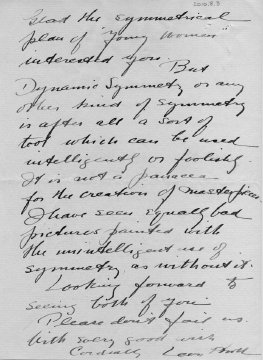 Glad the symmetrical
plan of "young woman"
interested you.
But
Dynamic Symmetry or any
other kind of symmetry
is after all a sort of
tool which can be used
intelligently or foolishly
It is not a panacea
for the creation of masterpieces.
I have seen equally bad
pictures painted with
the unintelligent use of
symmetry as without it.
Looking forward to
seeing both of you
Please don't fail us.
With every good wish
Cordially Leon